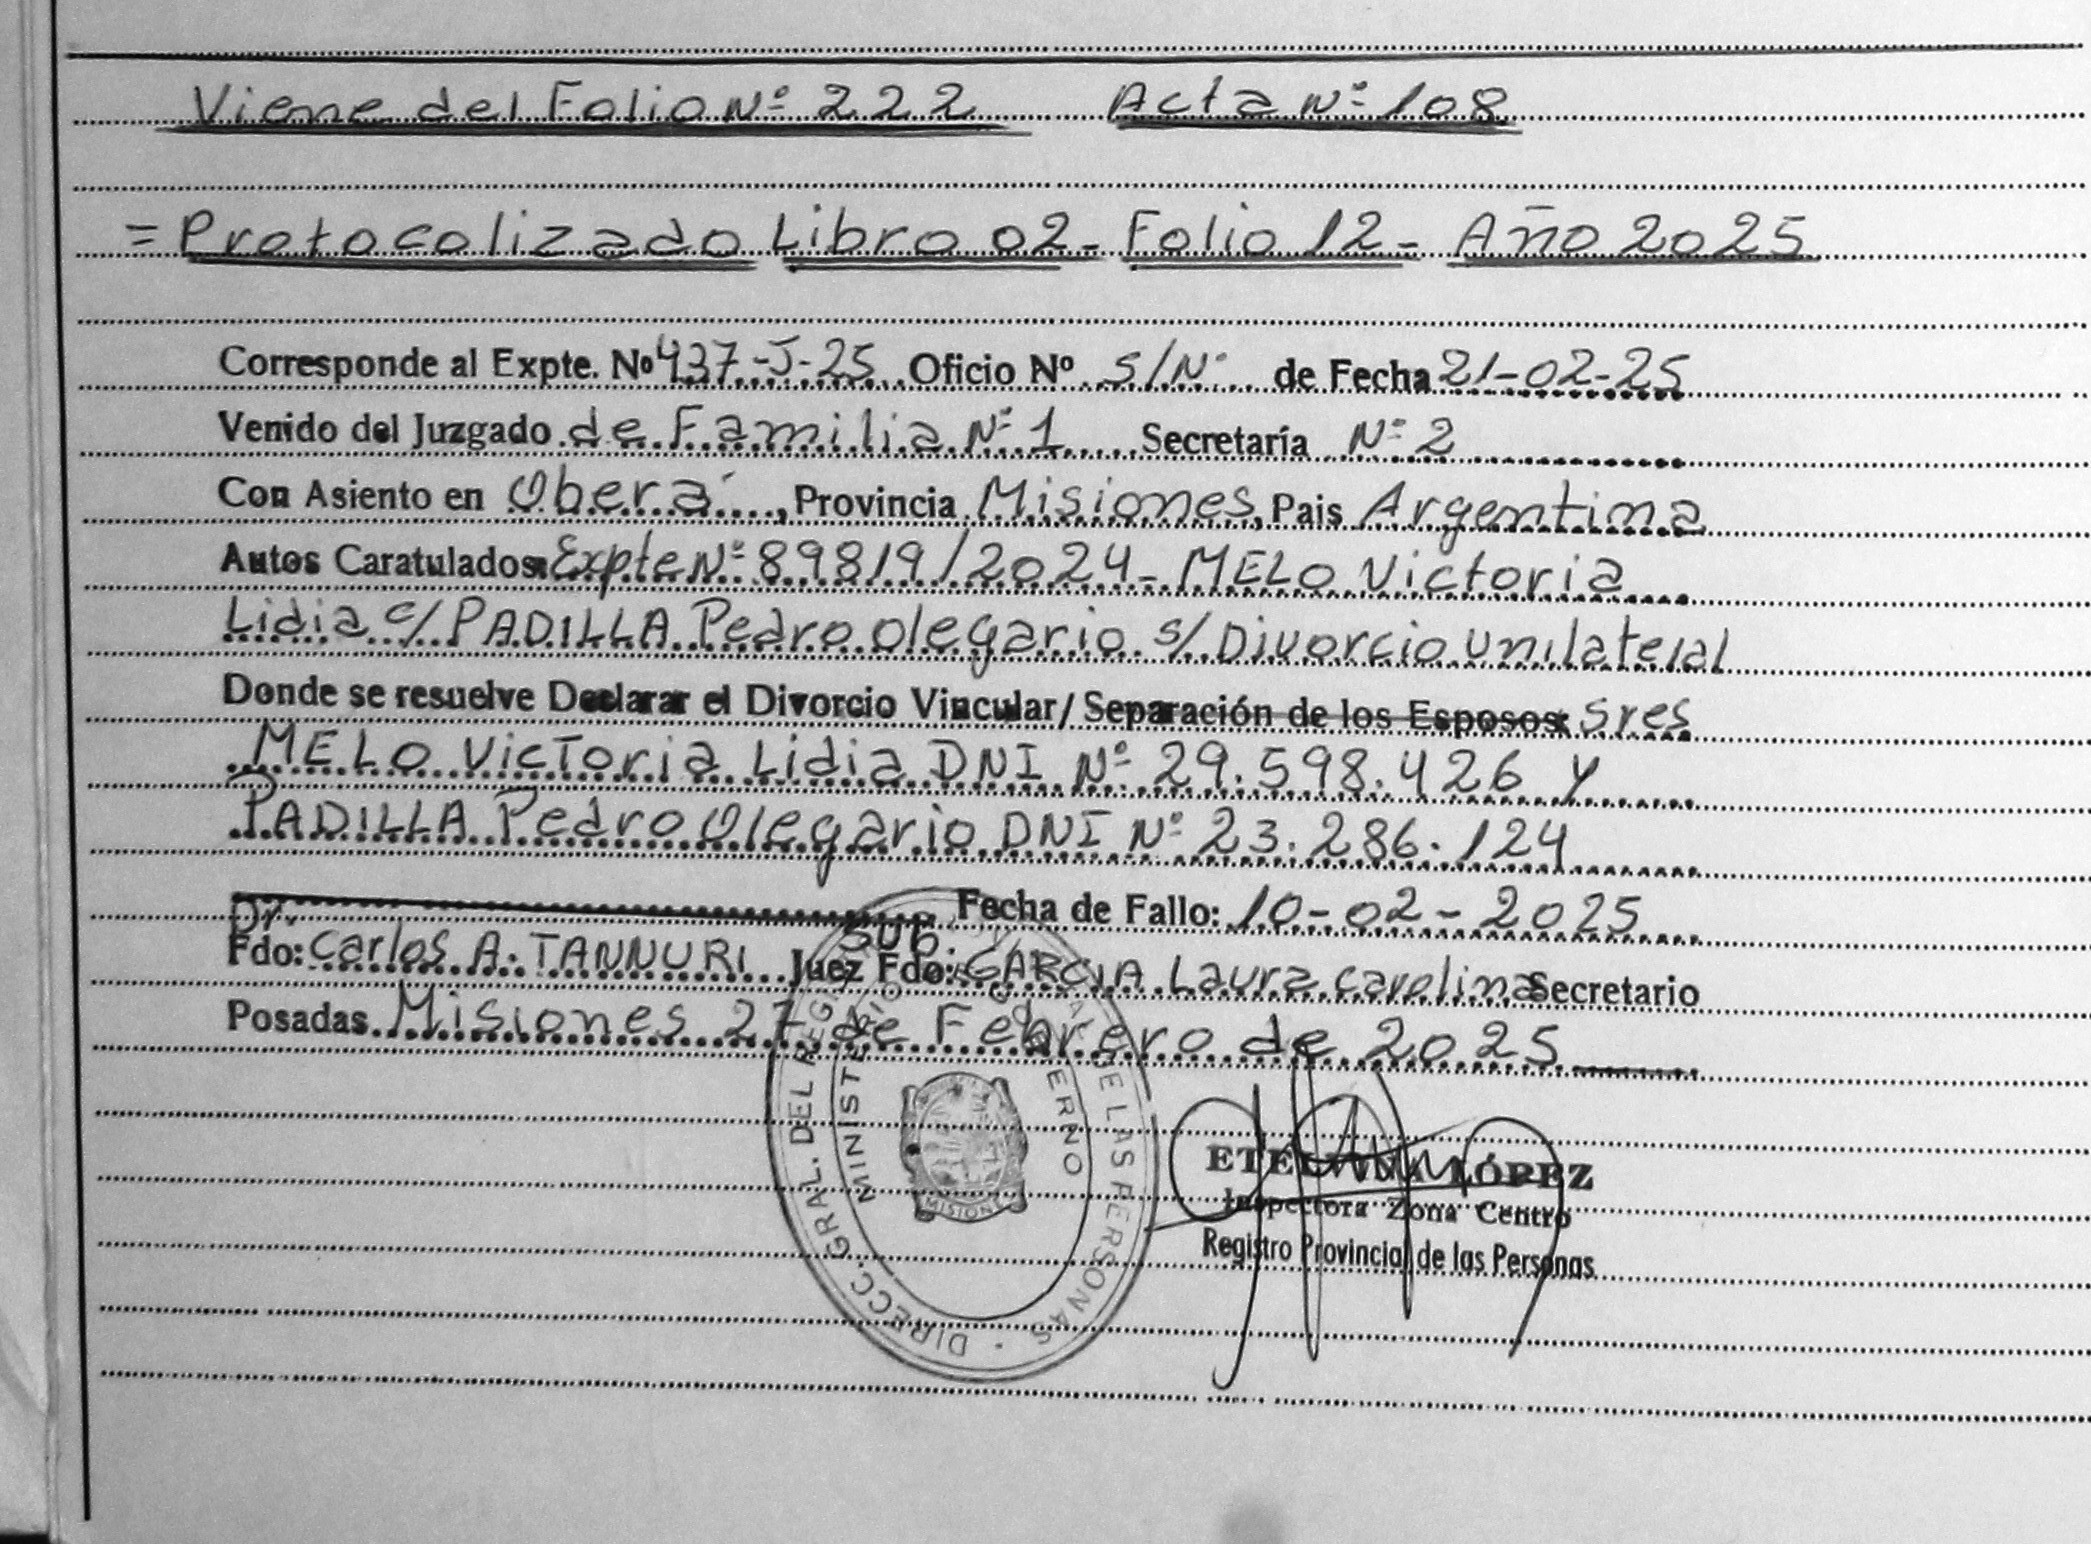 Viene del Folio Nº 222 Acta Nº 108
= Protocolizado Libro 02 - Folio 12 - Año 2025
Corresponde al Expte. Nº 437-J-25 Oficio Nº S/Nº de Fecha 21-02-25
Venido del Juzgado de Familia Nº 1 Secretaría Nº 2
Con Asiento en Oberá, Provincia Misiones, Pais Argentina
Autos Caratulados: Expte Nº 89819/2024 - MELO Victoria
Lidia c/ PADILLA Pedro Olegario s/ Divorcio Unilateral
Donde se resuelve Declarar el Divorcio Vincular/ Separación de los Esposos: Sres
MELO Victoria Lidia DNI Nº 29.598.426 y
PADILLA Pedro Olegario DNI Nº 23.286.124
Fecha de Fallo: 10-02-2025
Dr.
SUB.
Fdo: Carlos A. TANNURI Juez Fdo: GARCIA Laura Carolina Secretario
Posadas Misiones 27 de Febrero de 2025
DIRECC. GRAL. DEL REGISTRO PROVINCIAL DE LAS PERSONAS
MINISTERIO DE GOBIERNO
MISIONES
ETELVINA LÓPEZ
Inspectora Zona Centro
Registro Provincial de las Personas